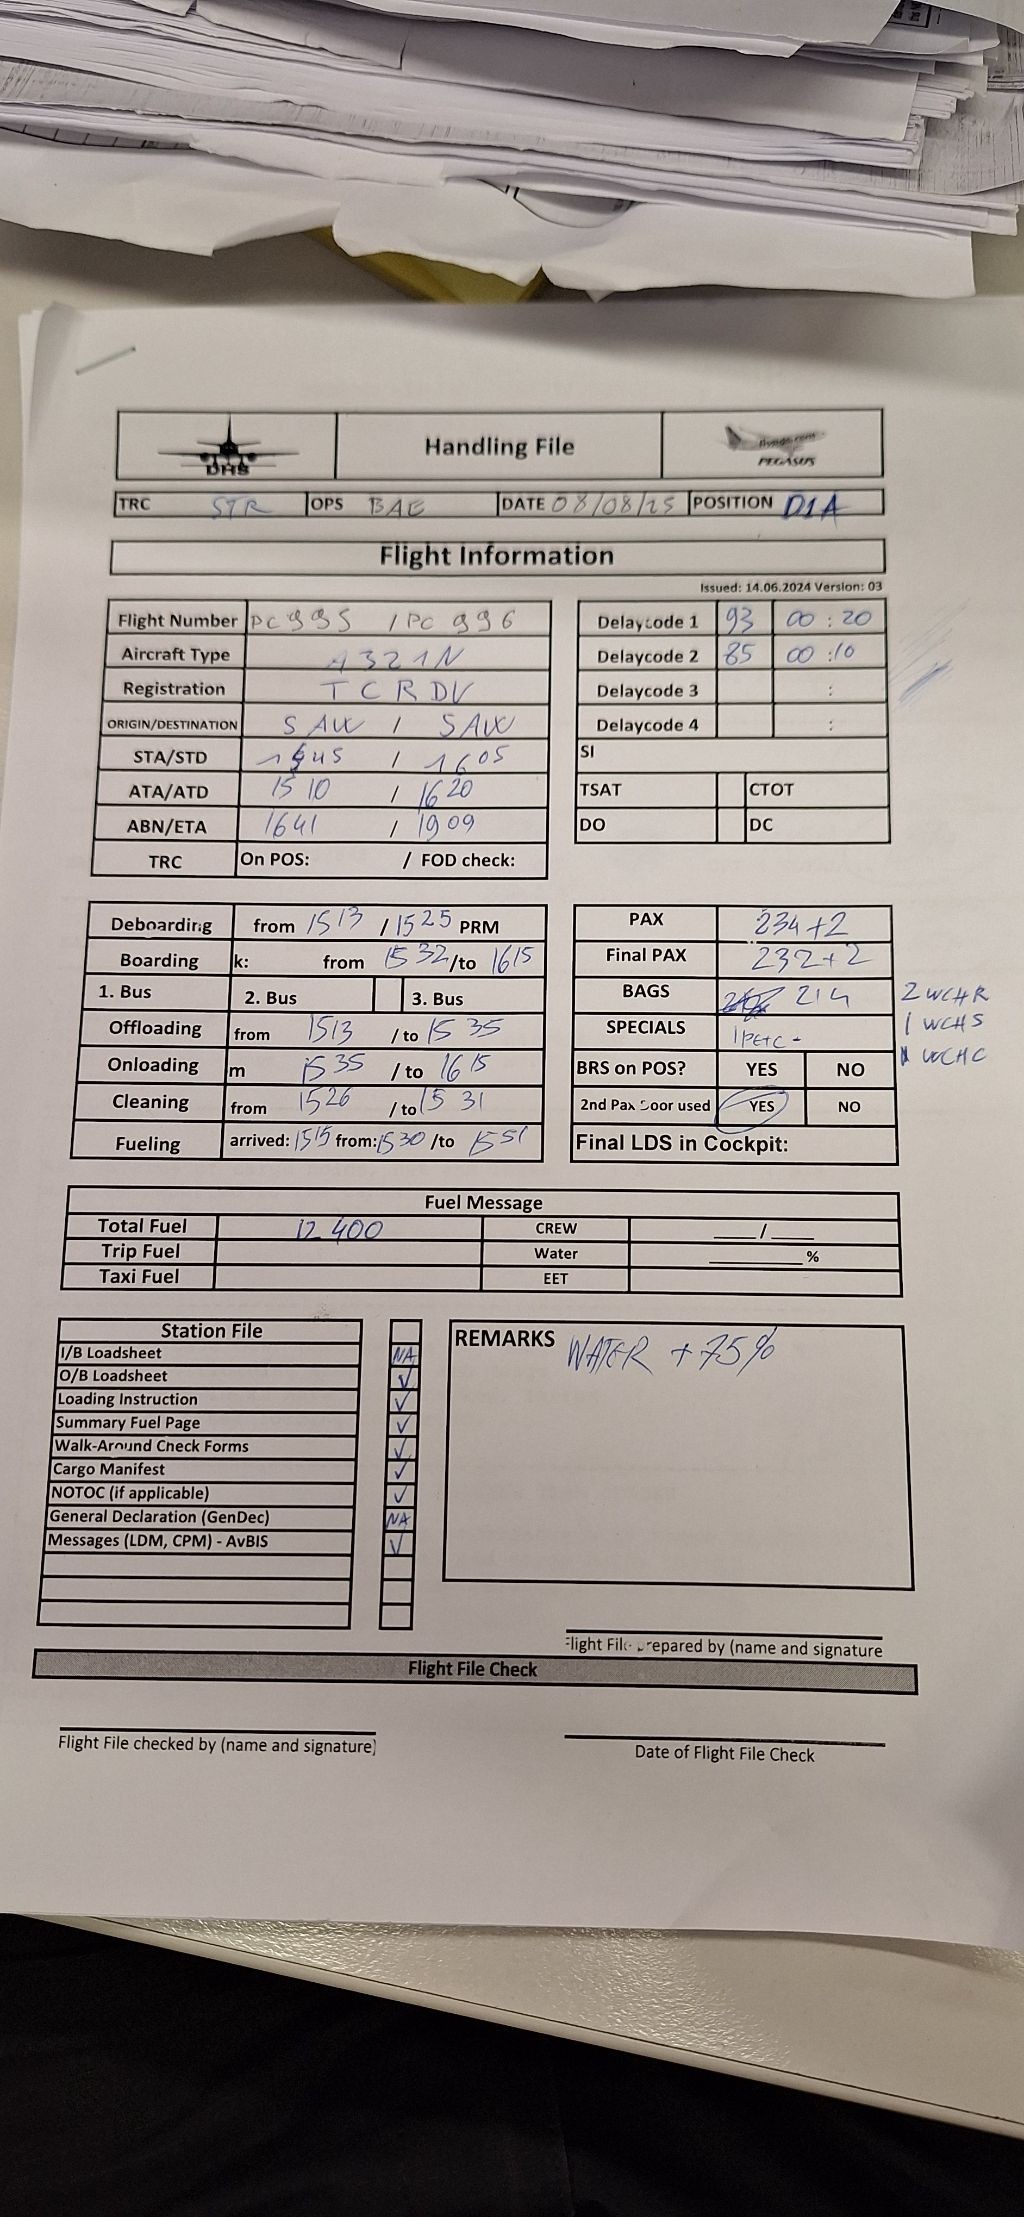 DHS
Handling File
flypgs.com
PEGASUS
TRC STR OPS BAE DATE 08/08/25 POSITION D1A
Flight Information
Issued: 14.06.2024 Version: 03
Flight Number PC 995 / PC 996
Aircraft Type A321N
Registration TCRDV
ORIGIN/DESTINATION SAW / SAW
STA/STD 1545 / 1605
ATA/ATD 1510 / 1620
ABN/ETA 1641 / 1909
TRC On POS: / FOD check:
Delaycode 1 93 00:20
Delaycode 2 85 00:10
Delaycode 3 :
Delaycode 4 :
SI
TSAT CTOT
DO DC
Deboarding from 1513 / 1525 PRM
Boarding k: from 1532 /to 1615
1. Bus 2. Bus 3. Bus
Offloading from 1513 / to 1535
Onloading m 1535 / to 1615
Cleaning from 1526 / to 1531
Fueling arrived: 1515 from: 1530 /to 1551
PAX 234+2
Final PAX 232+2
BAGS 214
SPECIALS 1 PETC -
BRS on POS? YES NO
2nd Pax Door used YES NO
Final LDS in Cockpit:
2 WCHR
1 WCHS
1 WCHC
Fuel Message
Total Fuel 12 400 CREW ____/____
Trip Fuel Water ________%
Taxi Fuel EET
Station File
I/B Loadsheet NA
O/B Loadsheet ✓
Loading Instruction ✓
Summary Fuel Page ✓
Walk-Around Check Forms ✓
Cargo Manifest ✓
NOTOC (if applicable) ✓
General Declaration (GenDec) NA
Messages (LDM, CPM) - AvBIS ✓
REMARKS WATER + 75%
Flight File prepared by (name and signature
Flight File Check
Flight File checked by (name and signature)
Date of Flight File Check